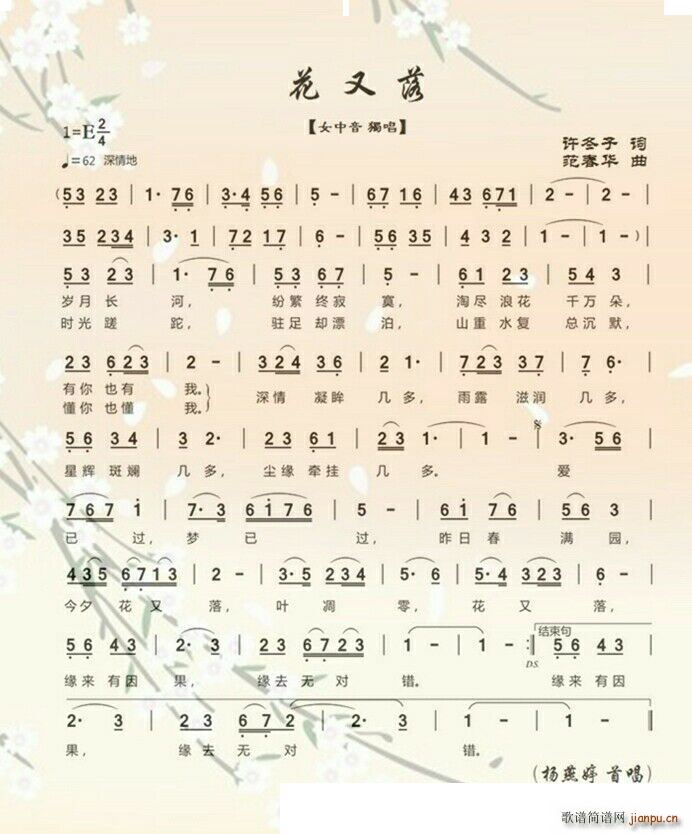 花又落
【女中音 獨唱】
1=E 2/4
♩=62 深情地
许冬子 词
范春华 曲
(53 23 | 1· 76 | 3·4 56 | 5 - | 67 16 | 43 671 | 2 - | 2 - |
35 234 | 3· 1 | 72 17 | 6 - | 56 35 | 432 | 1 - | 1 - ) |
53 23 | 1· 76 | 53 67 | 5 - | 61 23 | 543 |
岁月长 河, 纷繁终寂 寞, 淘尽浪花 千万朵,
时光蹉 跎, 驻足却漂 泊, 山重水复 总沉默,
23 623 | 2 - | 324 36 | 2· | 723 37 | 6· |
有你也有 我。 深情 凝眸 几多, 雨露 滋润 几多,
懂你也懂 我。
56 34 | 3 2· | 23 61 | 23 1· | 1 - | 56 |
星辉 斑斓 几多, 尘缘 牵挂 几多。 爱
767 1 | 7·3 | 6176 | 5 - | 671 7 | 65 |
已 过, 梦 已 过, 昨日 春 满 园,
435 6713 | 2 - | 3·5 234 | 5· 6 | 5·4 323 |
今夕 花 又 落, 叶 凋 零, 花 又 落,
结束句
56 43 | 2· 3 | 23 6723 | 1 - | 1 - :‖ 56 43 |
D.S.
缘来 有因 果, 缘去 无 对 错。 缘来 有因
2· 3 | 23 672 | 2· 3 | 1 - | 1 - | 1 - ‖
果, 缘去 无 对 错。
(杨燕婷 首唱)
歌谱简谱网
jianpu.cn
jianpu.cn